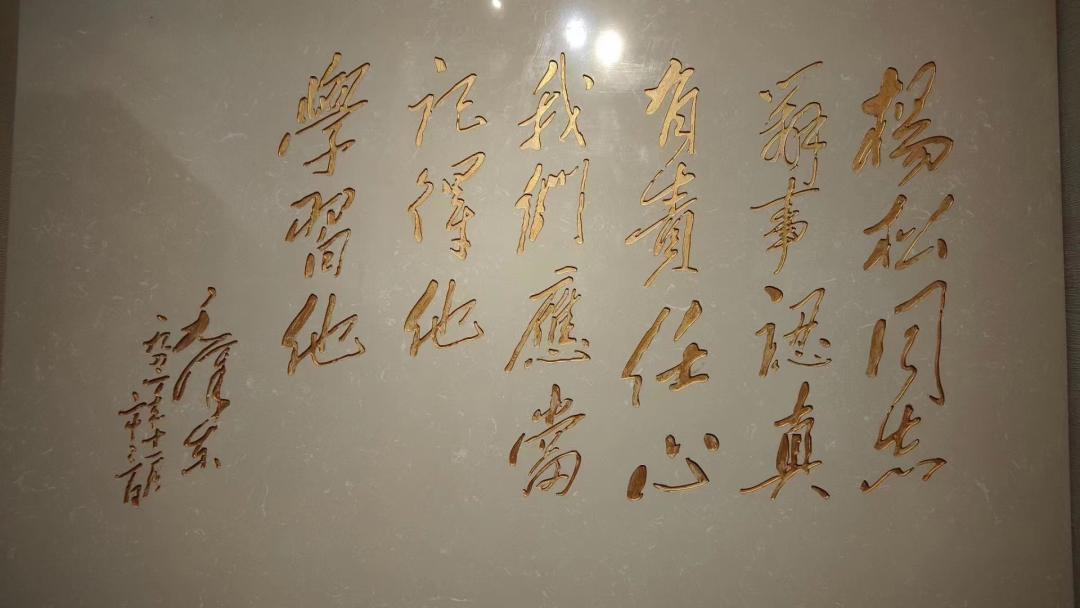 楊松同志
辦事認真
有責任心
我們應當
记得他
學習他
毛澤東
一九四二年十一月
二十三日